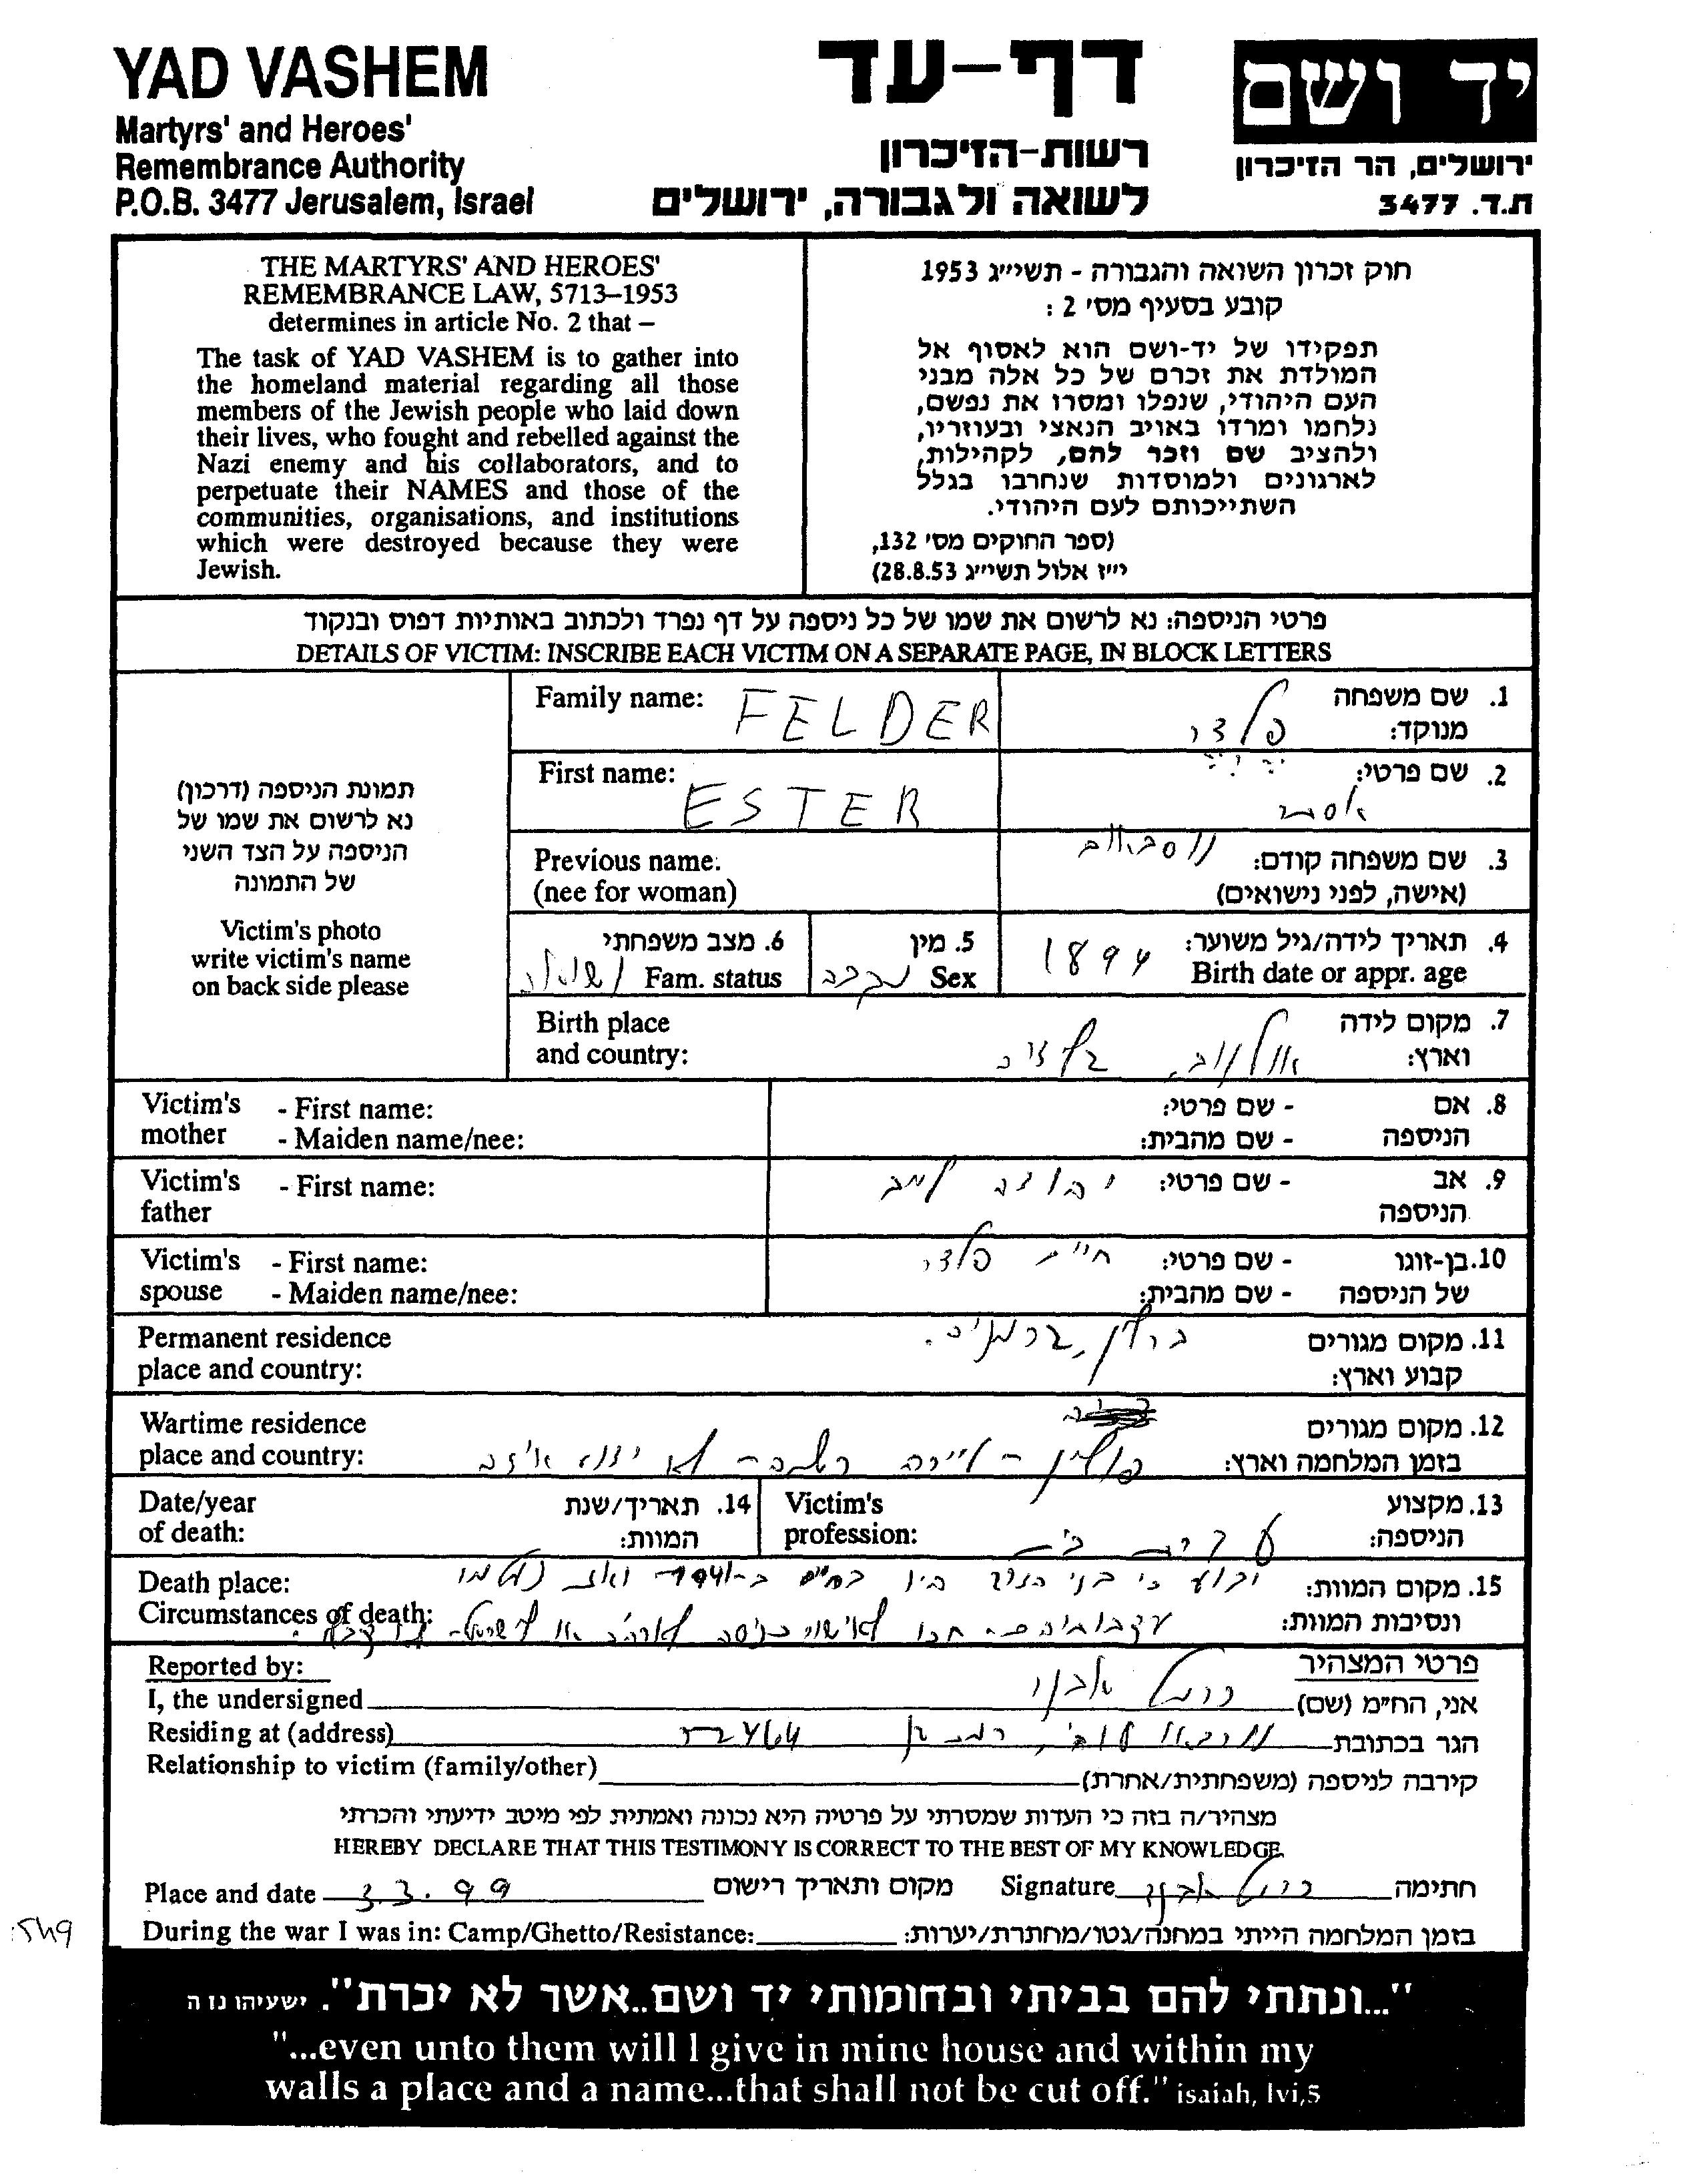 YAD VASHEM
Martyrs' and Heroes'
Remembrance Authority
P.O.B. 3477 Jerusalem, Israel
דף-עד
רשות-הזיכרון
לשואה ולגבורה, ירושלים
יד ושם
ירושלים, הר הזיכרון
ת.ד. 3477
THE MARTYRS' AND HEROES'
REMEMBRANCE LAW, 5713–1953
determines in article No. 2 that –
The task of YAD VASHEM is to gather into
the homeland material regarding all those
members of the Jewish people who laid down
their lives, who fought and rebelled against the
Nazi enemy and his collaborators, and to
perpetuate their NAMES and those of the
communities, organisations, and institutions
which were destroyed because they were
Jewish.
חוק זכרון השואה והגבורה - תשי״ג 1953
קובע בסעיף מס' 2 :
תפקידו של יד-ושם הוא לאסוף אל
המולדת את זכרם של כל אלה מבני
העם היהודי, שנפלו ומסרו את נפשם,
נלחמו ומרדו באויב הנאצי ובעוזריו,
ולהציב שם וזכר להם, לקהילות,
לארגונים ולמוסדות שנחרבו בגלל
השתייכותם לעם היהודי.
(ספר החוקים מס' 132,
י״ז אלול תשי״ג 28.8.53)
פרטי הניספה: נא לרשום את שמו של כל ניספה על דף נפרד ולכתוב באותיות דפוס ובנקוד
DETAILS OF VICTIM: INSCRIBE EACH VICTIM ON A SEPARATE PAGE, IN BLOCK LETTERS
תמונת הניספה (דרכון)
נא לרשום את שמו של
הניספה על הצד השני
של התמונה
Victim's photo
write victim's name
on back side please
Family name: FELDER
1. שם משפחה פלדר
מנוקד:
First name: ESTER
2. שם פרטי: אסתר
Previous name:
(nee for woman)
3. שם משפחה קודם:
(אישה, לפני נישואים)
6. מצב משפחתי
Fam. status נשואה
5. מין
Sex נקבה
4. תאריך לידה/גיל משוער: 1894
Birth date or appr. age
Birth place
and country:
7. מקום לידה
וארץ:
Victim's mother - First name:
- Maiden name/nee:
8. אם - שם פרטי:
הניספה - שם מהבית:
Victim's father - First name:
9. אב - שם פרטי: יהודה לייב
הניספה
Victim's spouse - First name:
- Maiden name/nee:
10. בן-זוגו - שם פרטי: חיים פלדר
של הניספה - שם מהבית:
Permanent residence
place and country:
11. מקום מגורים ברלין, גרמניה.
קבוע וארץ:
Wartime residence
place and country:
12. מקום מגורים
בזמן המלחמה וארץ: פולין - עיירה קטנה - לא ידוע איזה
Date/year
of death:
14. תאריך/שנת
המוות:
Victim's
profession: עקרת בית
13. מקצוע
הניספה:
Death place:
Circumstances of death:
15. מקום המוות: ידוע כי בני הזוג היו בחיים ב-1941 ואז נעלמו
ונסיבות המוות: עקבותיהם - חכו לאישור כניסה לארה״ב או לישראל -
Reported by:
פרטי המצהיר
I, the undersigned
אני, הח״מ (שם) כרמל אבנר
Residing at (address) 52464
הגר בכתובת
Relationship to victim (family/other)
קירבה לניספה (משפחתית/אחרת)
מצהיר/ה בזה כי העדות שמסרתי על פרטיה היא נכונה ואמתית לפי מיטב ידיעתי והכרתי
HEREBY DECLARE THAT THIS TESTIMONY IS CORRECT TO THE BEST OF MY KNOWLEDGE.
Place and date 3.3.99 מקום ותאריך רישום
Signature כרמל אבנר חתימה
During the war I was in: Camp/Ghetto/Resistance:
בזמן המלחמה הייתי במחנה/גטו/מחתרת/יערות:
"...ונתתי להם בביתי ובחומותי יד ושם..אשר לא יכרת". ישעיהו נו ה
"...even unto them will I give in mine house and within my
walls a place and a name...that shall not be cut off." isaiah, lvi,5